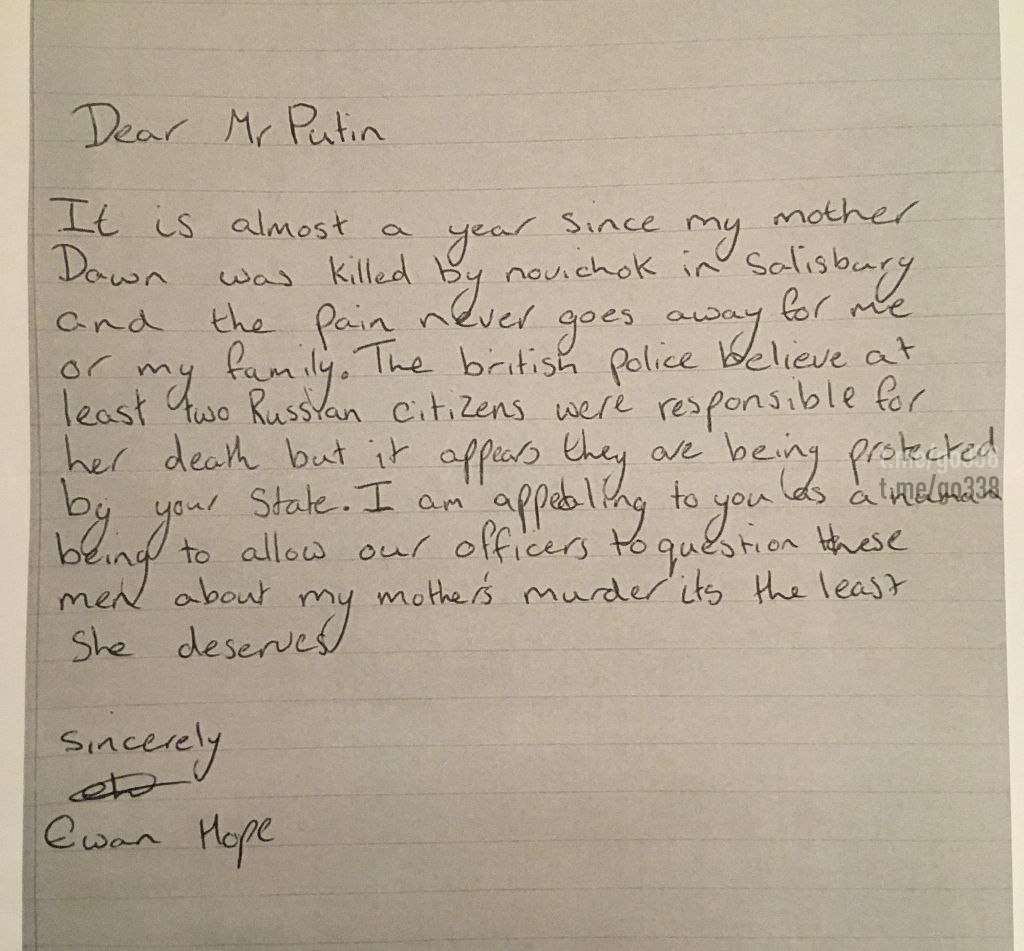 Dear Mr Putin
It is almost a year since my mother
Dawn was killed by novichok in Salisbury
and the pain never goes away for me
or my family. The british police believe at
least two Russian citizens were responsible for
her death but it appears they are being protected
t.me/go338
by your State. I am appealing to you as a
t.me/go338
being to allow our officers to question these
men about my mother's murder its the least
She deserves
Sincerely
Ewan Hope